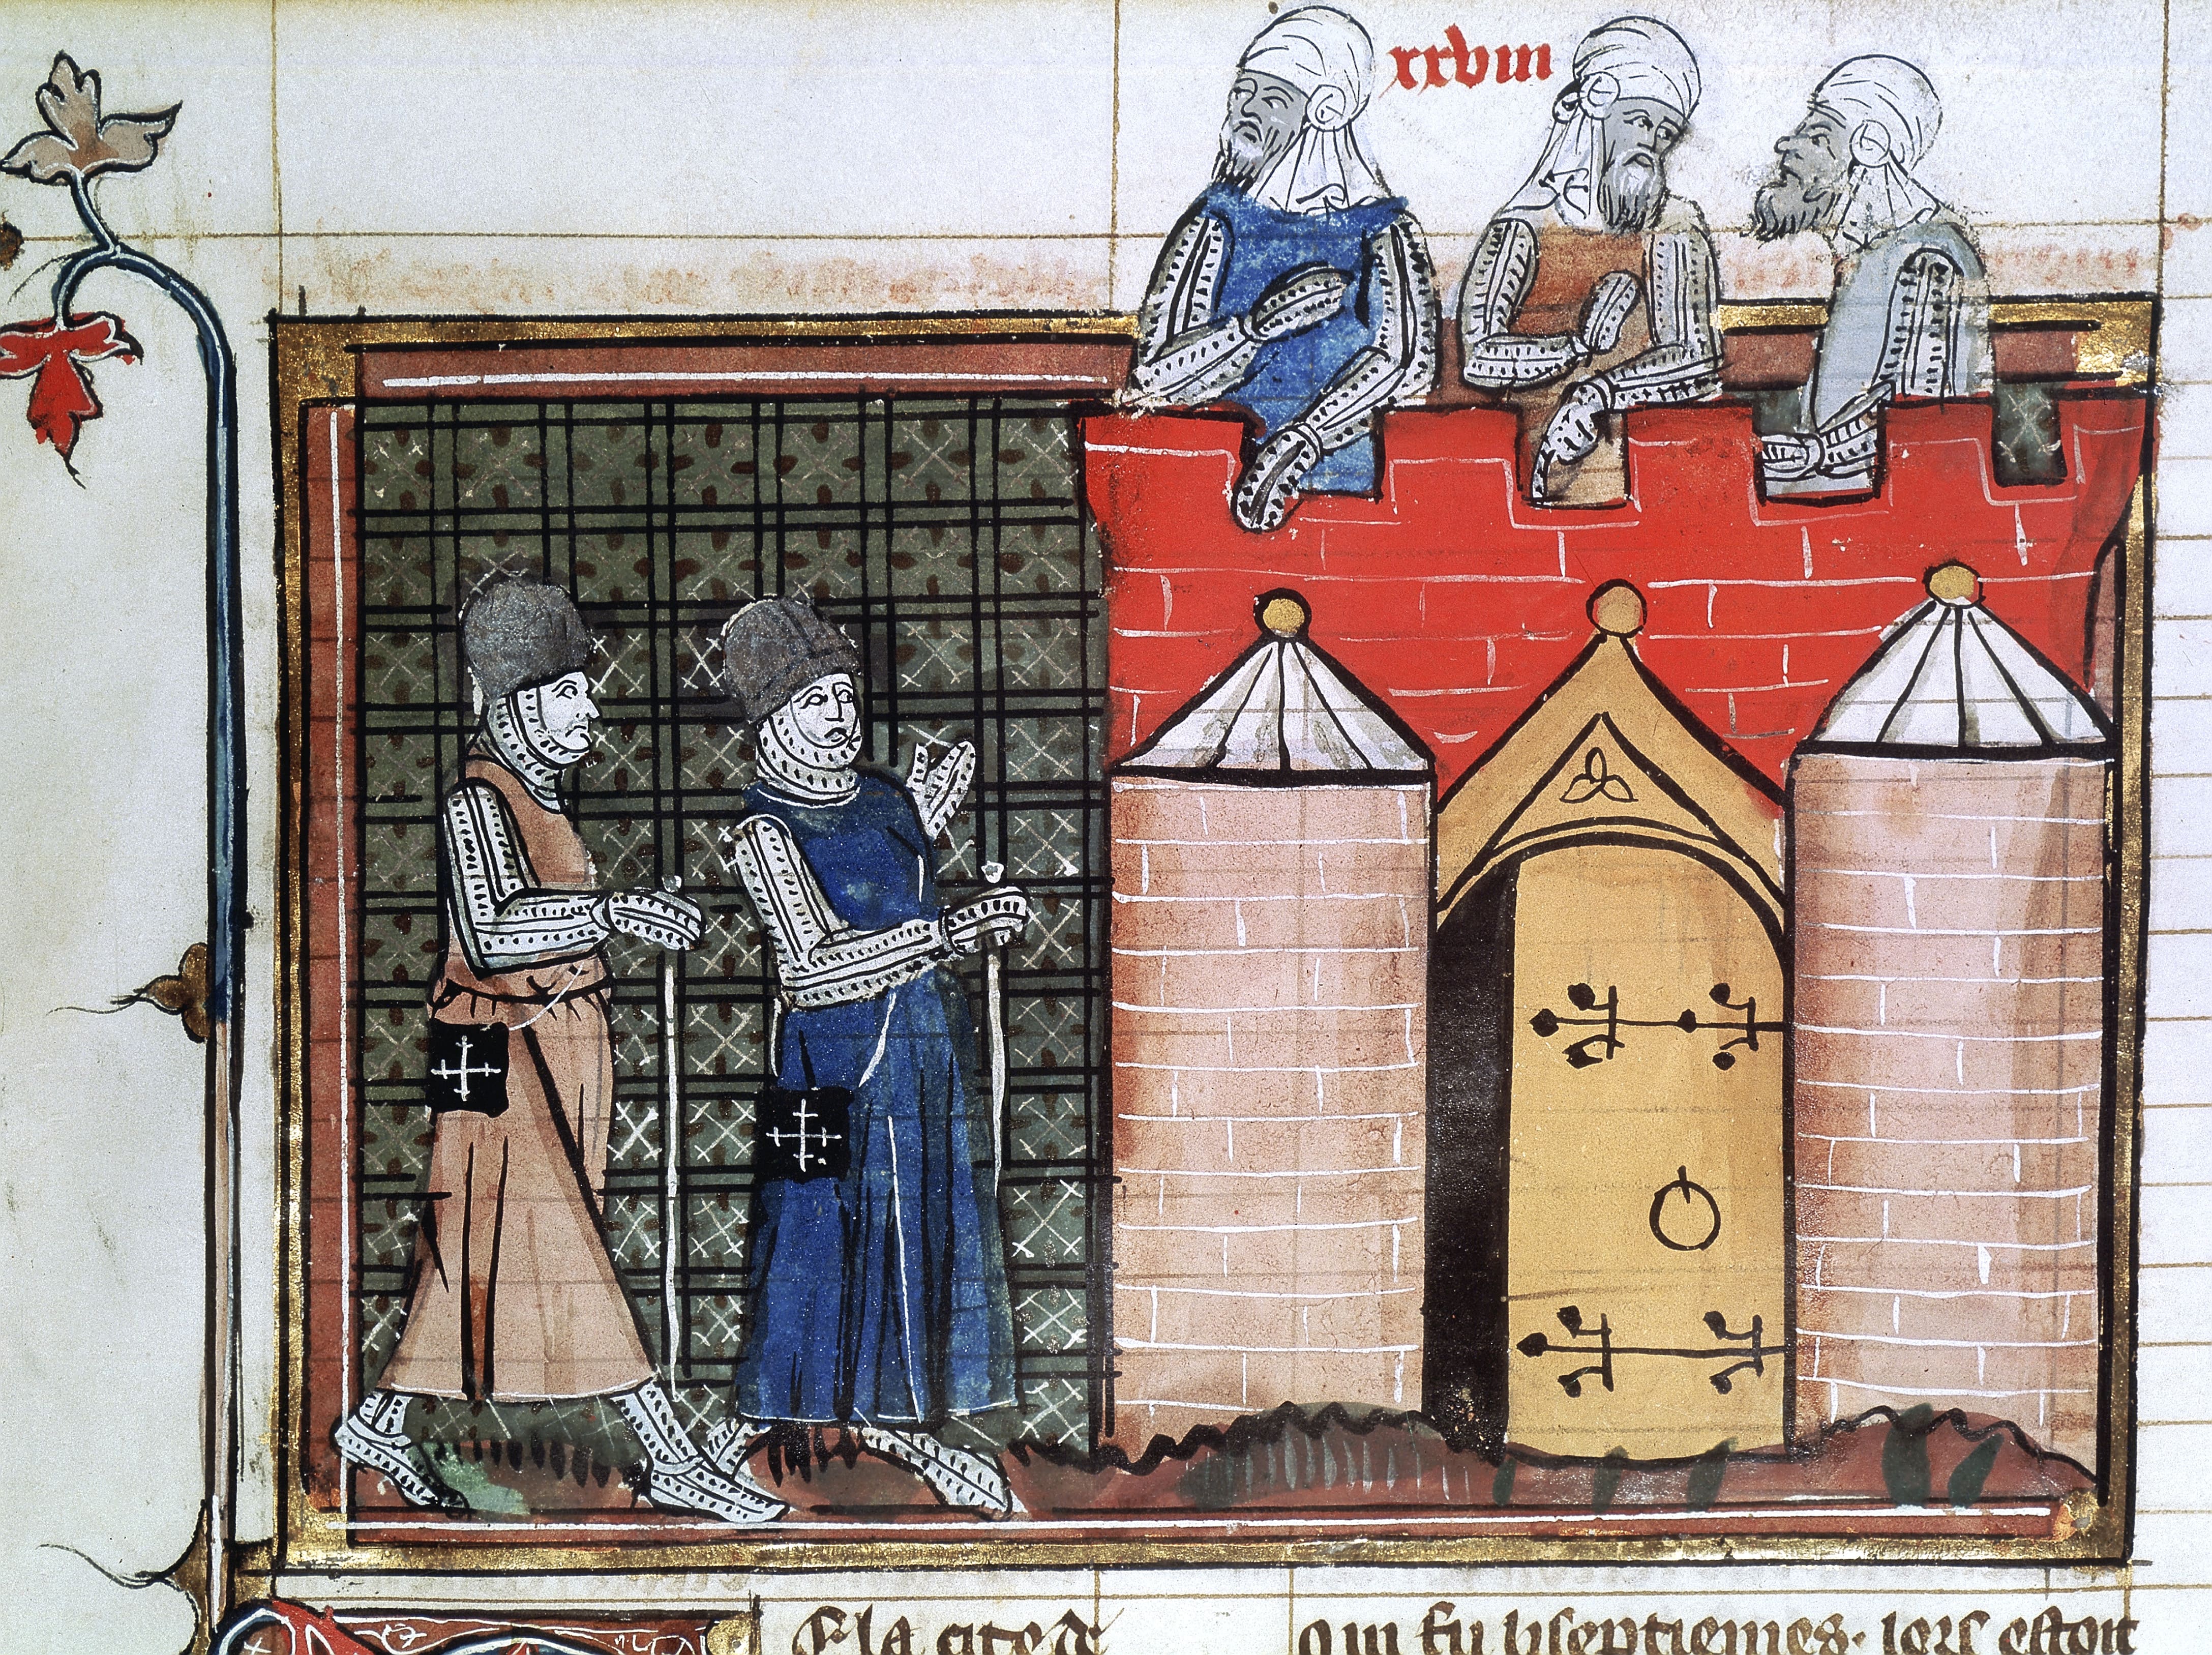 xxviii
E la cite d
qui fu li septiemes. lors estoit